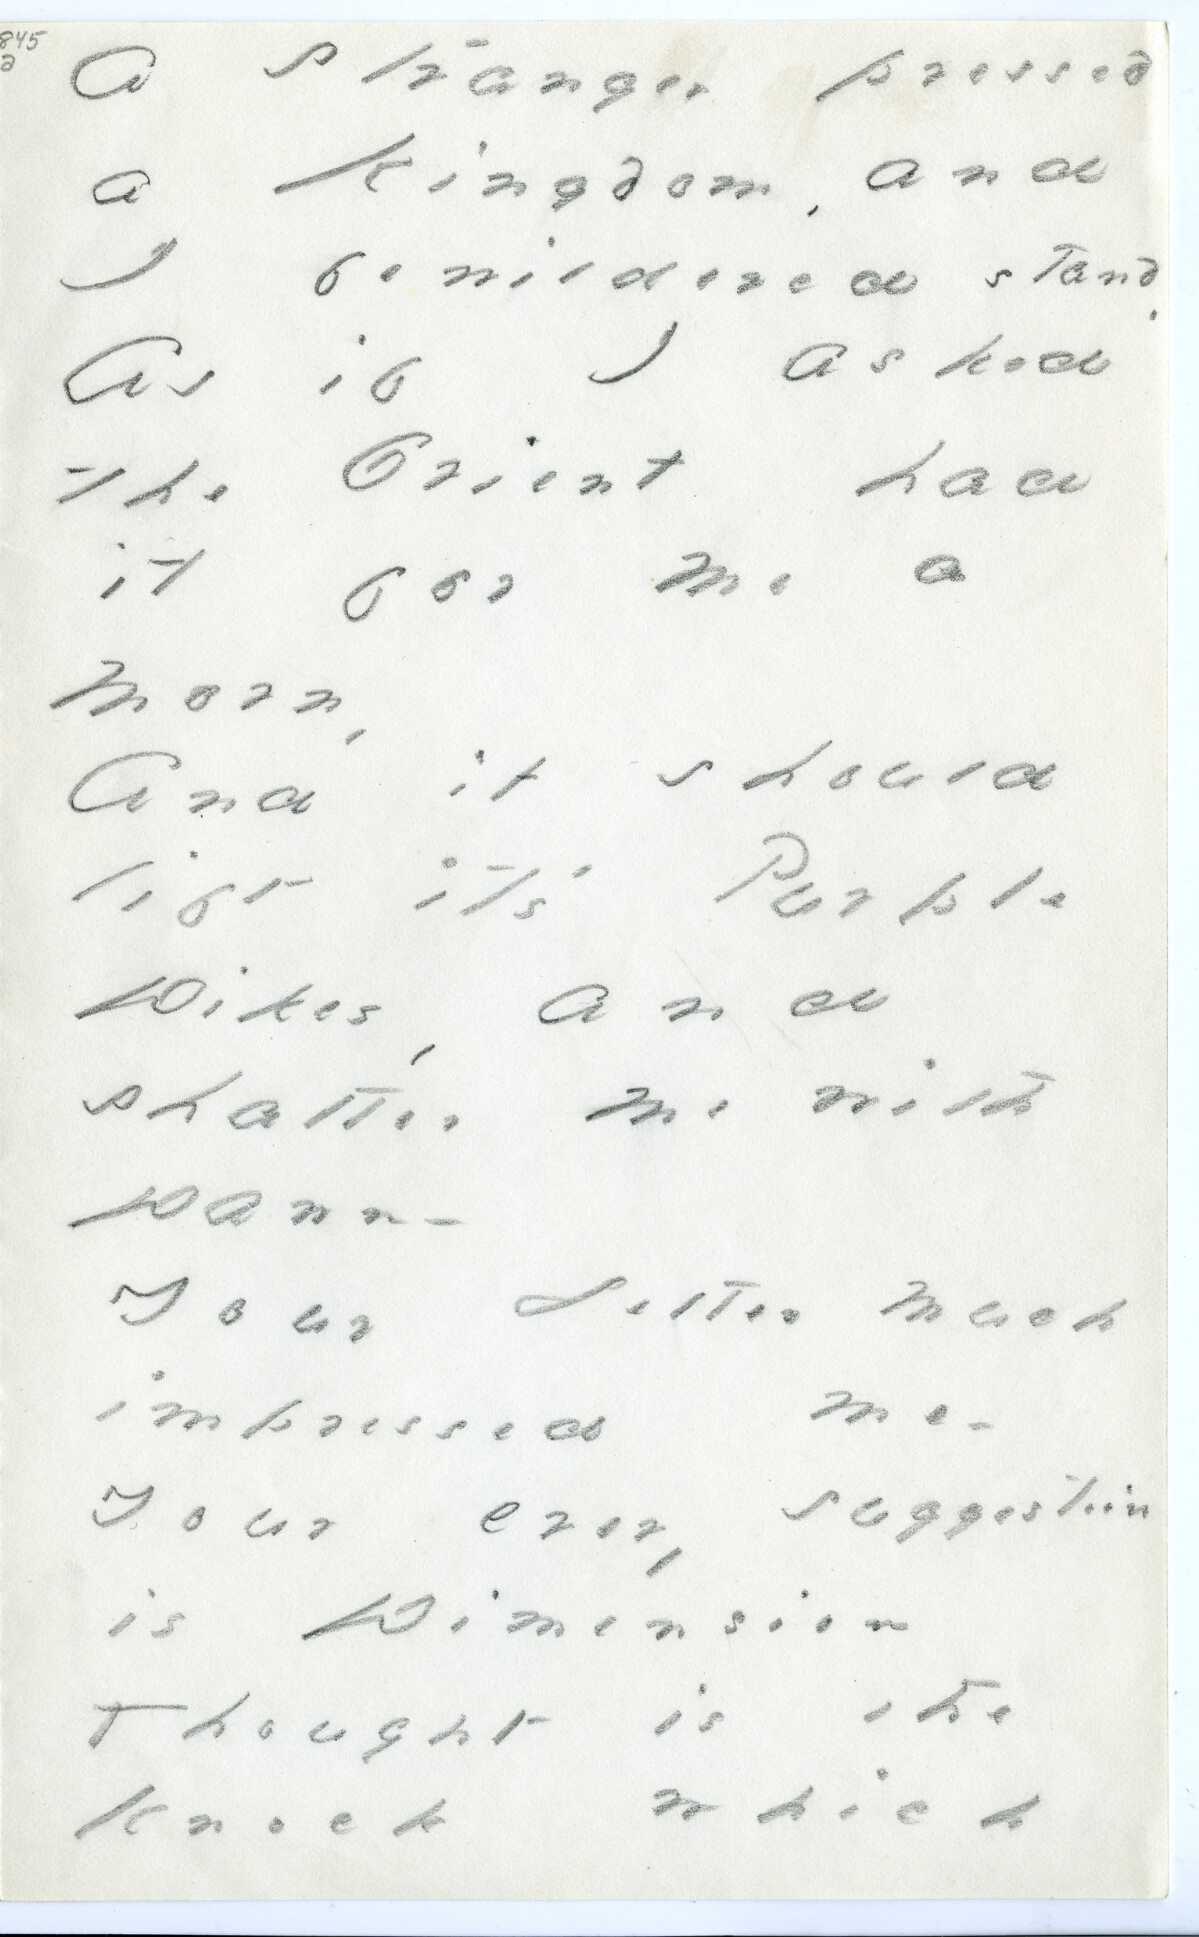 845
a
A stranger pressed
a Kingdom, and
I bewildered stand.
As if I asked
the Orient had
it for me a
Morn,
And it should
lift it's Purple
Dikes, and
shatter me with
Dawn -
Your Letter much
impressed me.
Your every suggestion
is Dimension
Thought is the
Knock which